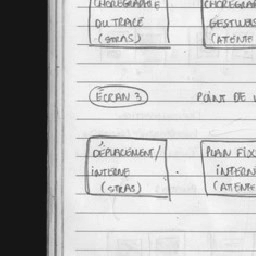 CHORÉGRAPHIE
DU TRACÉ
(STRAS)
CHORÉGRA
GESTUELL
(ATTENTE
ÉCRAN 3
POINT DE
DÉPLACEMENT/
INTERNE
(STRAS)
PLAN FIX
INTERN
(ATTENTE